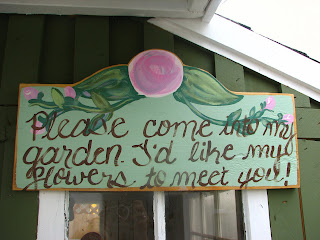 Please come into my
garden. I'd like my
flowers to meet you!